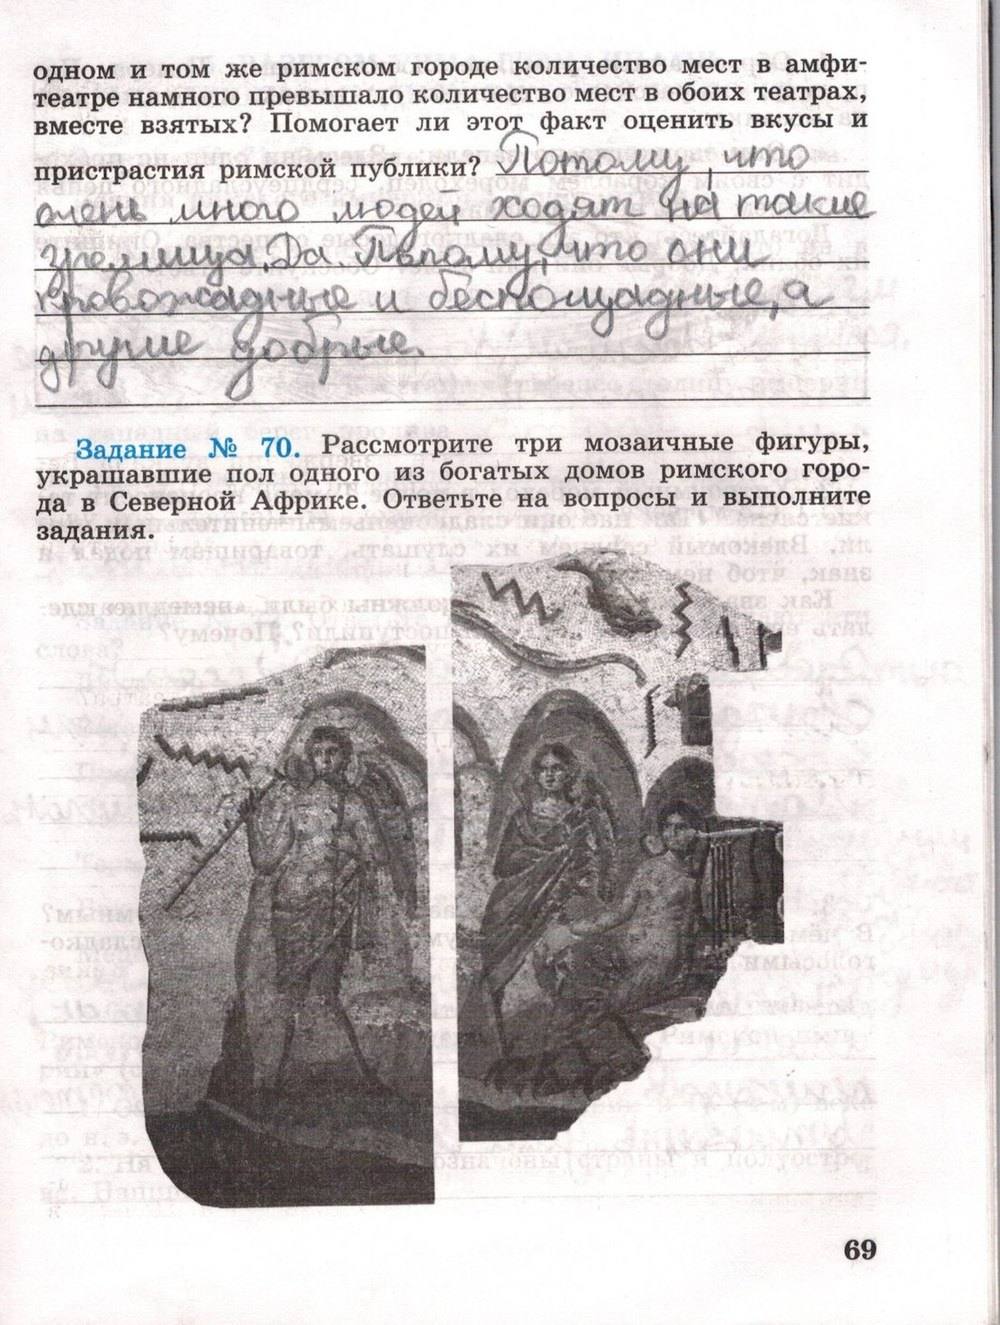 одном и том же римском городе количество мест в амфи-
театре намного превышало количество мест в обоих театрах,
вместе взятых? Помогает ли этот факт оценить вкусы и
пристрастия римской публики? Потому, что
очень много людей ходят на такие
зрелища. Да. Потому, что они
кровожадные и беспощадные, а
другие добрые.
Задание № 70. Рассмотрите три мозаичные фигуры,
украшавшие пол одного из богатых домов римского горо-
да в Северной Африке. Ответьте на вопросы и выполните
задания.
69